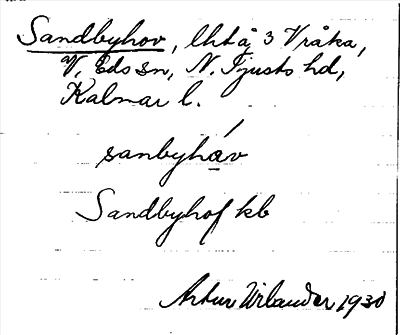 Sandbyhov, lht å 3 Vråka,
V. Eds sn, N. Tjusts hd,
Kalmar l.
sanbyhav
Sandbyhof kb
Artur Wilander 1930